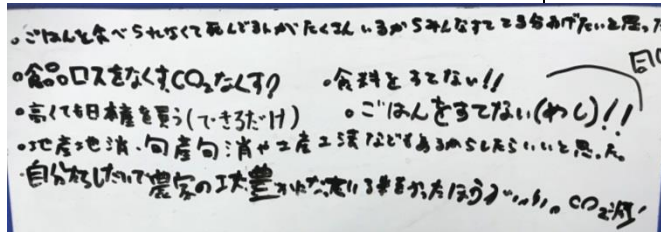 ・ごはんを食べられなくて死んでる人がたくさんいるからみんなすててる分あげたいと思った
・食品ロスをなくす、CO₂なくす? ・食料をすてない!!
・高くても日本産を買う(できるだけ) ・ごはんをすてない(めし)!!
・地産地消・旬産旬消や工産工消などもあるからしたらいいと思った。
・自分 農家の工夫 豊か かったほうが CO₂減